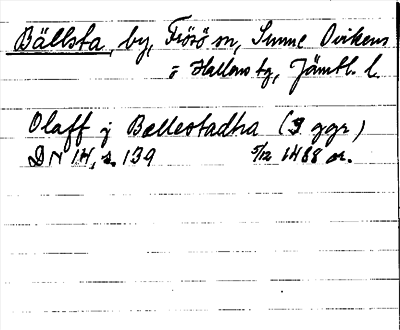 Bällsta, by, Frösö sn, Sunne Ovikens
o Hallens tg, Jämtl. l.
Olaff j Bællestadha (3 ggr)
DN 14, s. 139 5/12 1488 or.